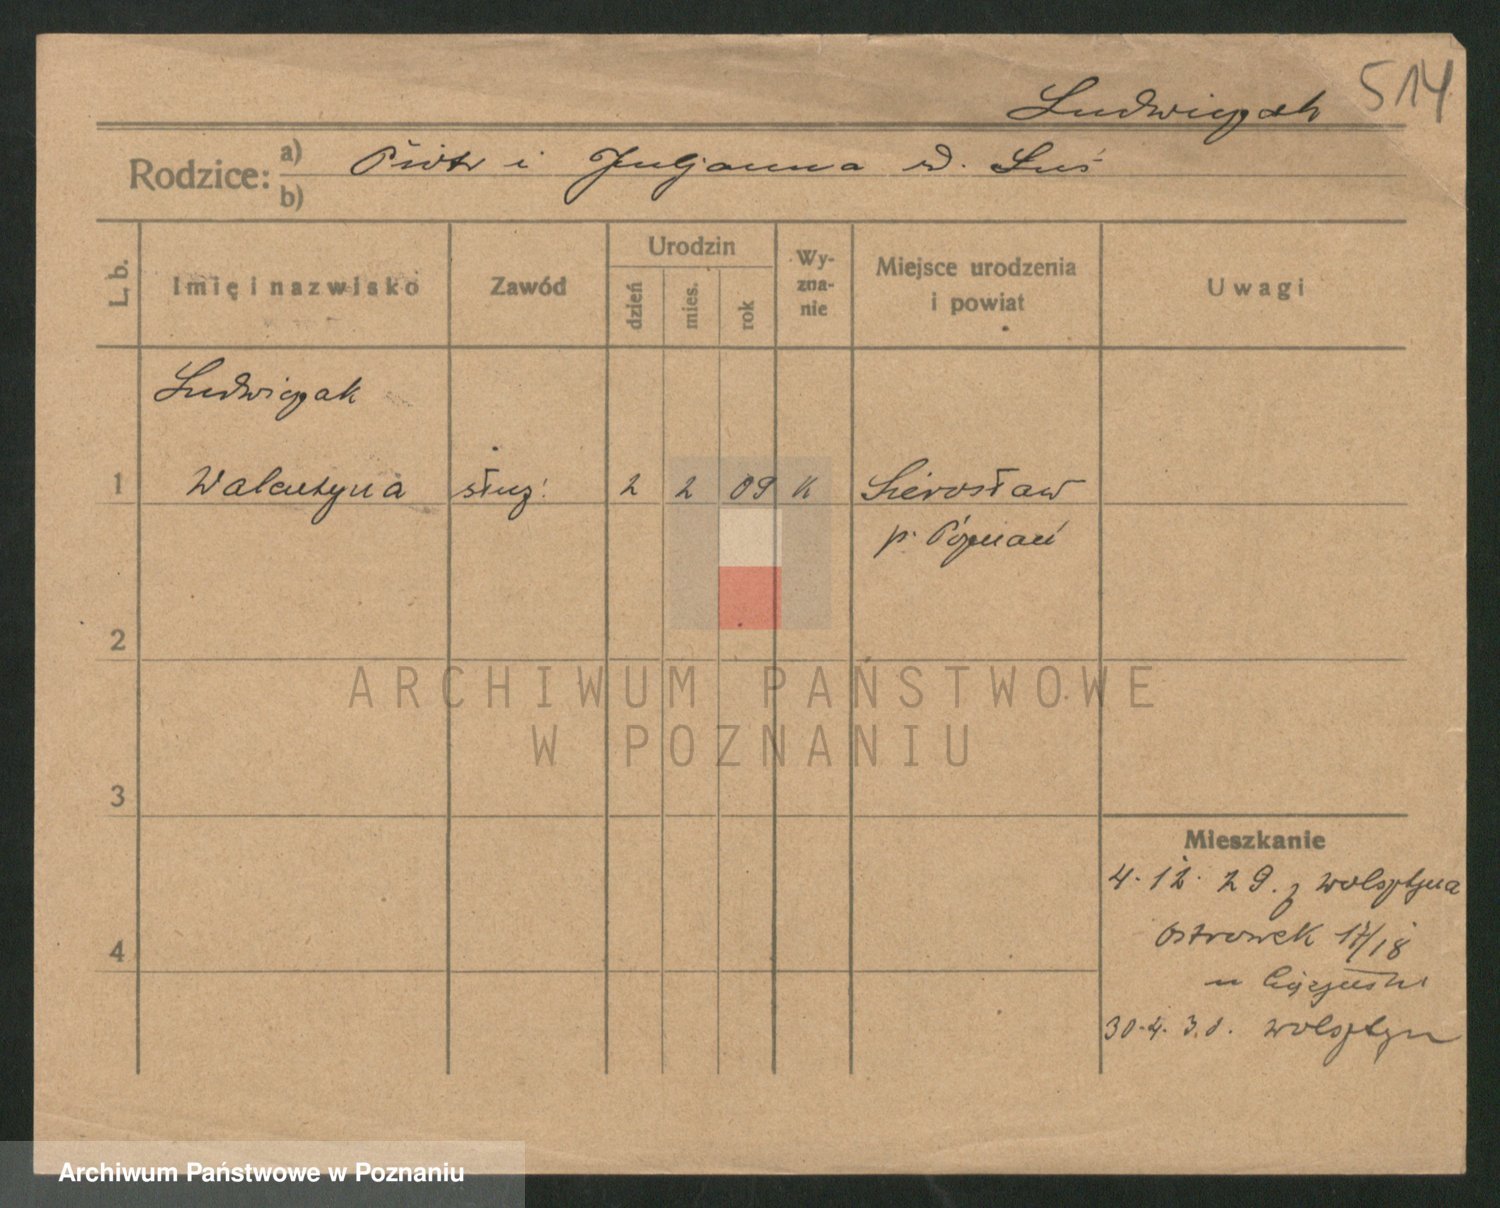 514
Ludwiczak
Rodzice: a) Piotr i Juljanna zd. Luś
b)
L. b. Imię i nazwisko Zawód Urodzin dzień mies. rok Wyznanie Miejsce urodzenia i powiat Uwagi
Ludwiczak
1 Walentyna służ. 2 2 09 k Sierosław
p. Poznań
2
ARCHIWUM PAŃSTWOWE
W POZNANIU
3
Mieszkanie
4. 12. 29. z Wolsztyna
Ostrówek 17/18
4
u
30. 4. 30. Wolsztyn
Archiwum Państwowe w Poznaniu